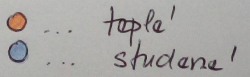 ... teplá
... studená